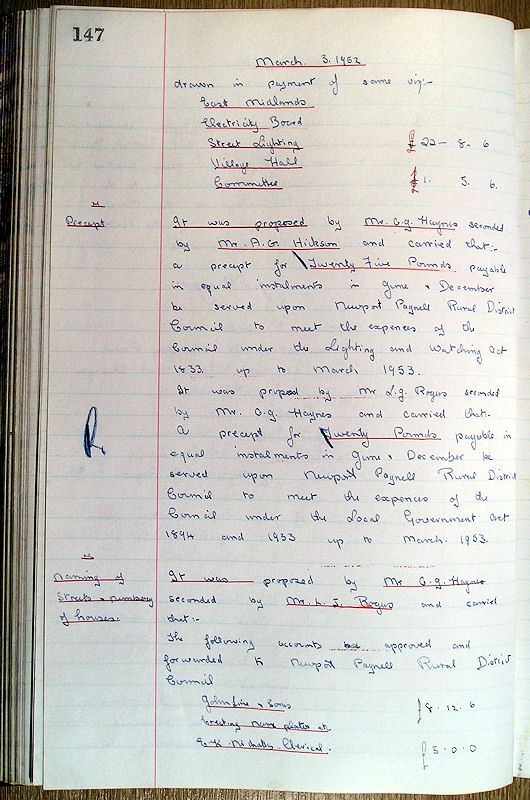 147
March. 3. 1952
drawn in payment of same viz:-
East Midlands
Electricity Board
Street Lighting £22-8. 6
Village Hall
Committee £1. 5. 6.
Precept. It was proposed by Mr. C.G. Haynes seconded
by Mr. A.G. Hickson and carried that:-
a precept for Twenty Five Pounds payable
in equal instalments in June & December
be served upon Newport Pagnell Rural District
Council to meet the expences of the
Council under the Lighting and Watching Act
1833 up to March 1953.
It was proposed by Mr L.J. Rogers seconded
by Mr. C.G. Haynes and carried that.
A precept for Twenty Pounds payable in
equal instalments in June & December be
served upon Newport Pagnell Rural District
Council to meet the expences of the
Council under the Local Government Act
1894 and 1933 up to March. 1953.
Naming of It was proposed by Mr C.G. Haynes
Streets & numbering seconded by Mr. L. J. Rogers and carried
of houses. that:-
The following accounts be approved and
forwarded to Newport Pagnell Rural District
Council
John Line & Sons £8. 12. 6
Erecting name plates etc.
Clerical. £5. 0. 0